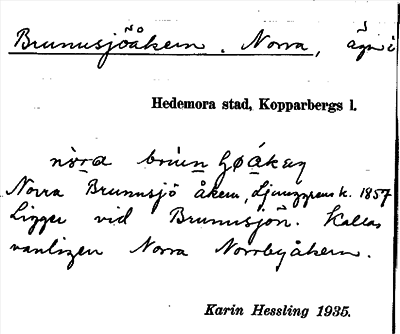 Brunnsjöåkern. Norra, ägo i
Hedemora stad, Kopparbergs l.
Norra Brunnsjö åkern, Ljunggrens k. 1857
Ligger vid Brunnsjön. Kallas
vanligen Norra Norrbyåkern.
Karin Hessling 1935.